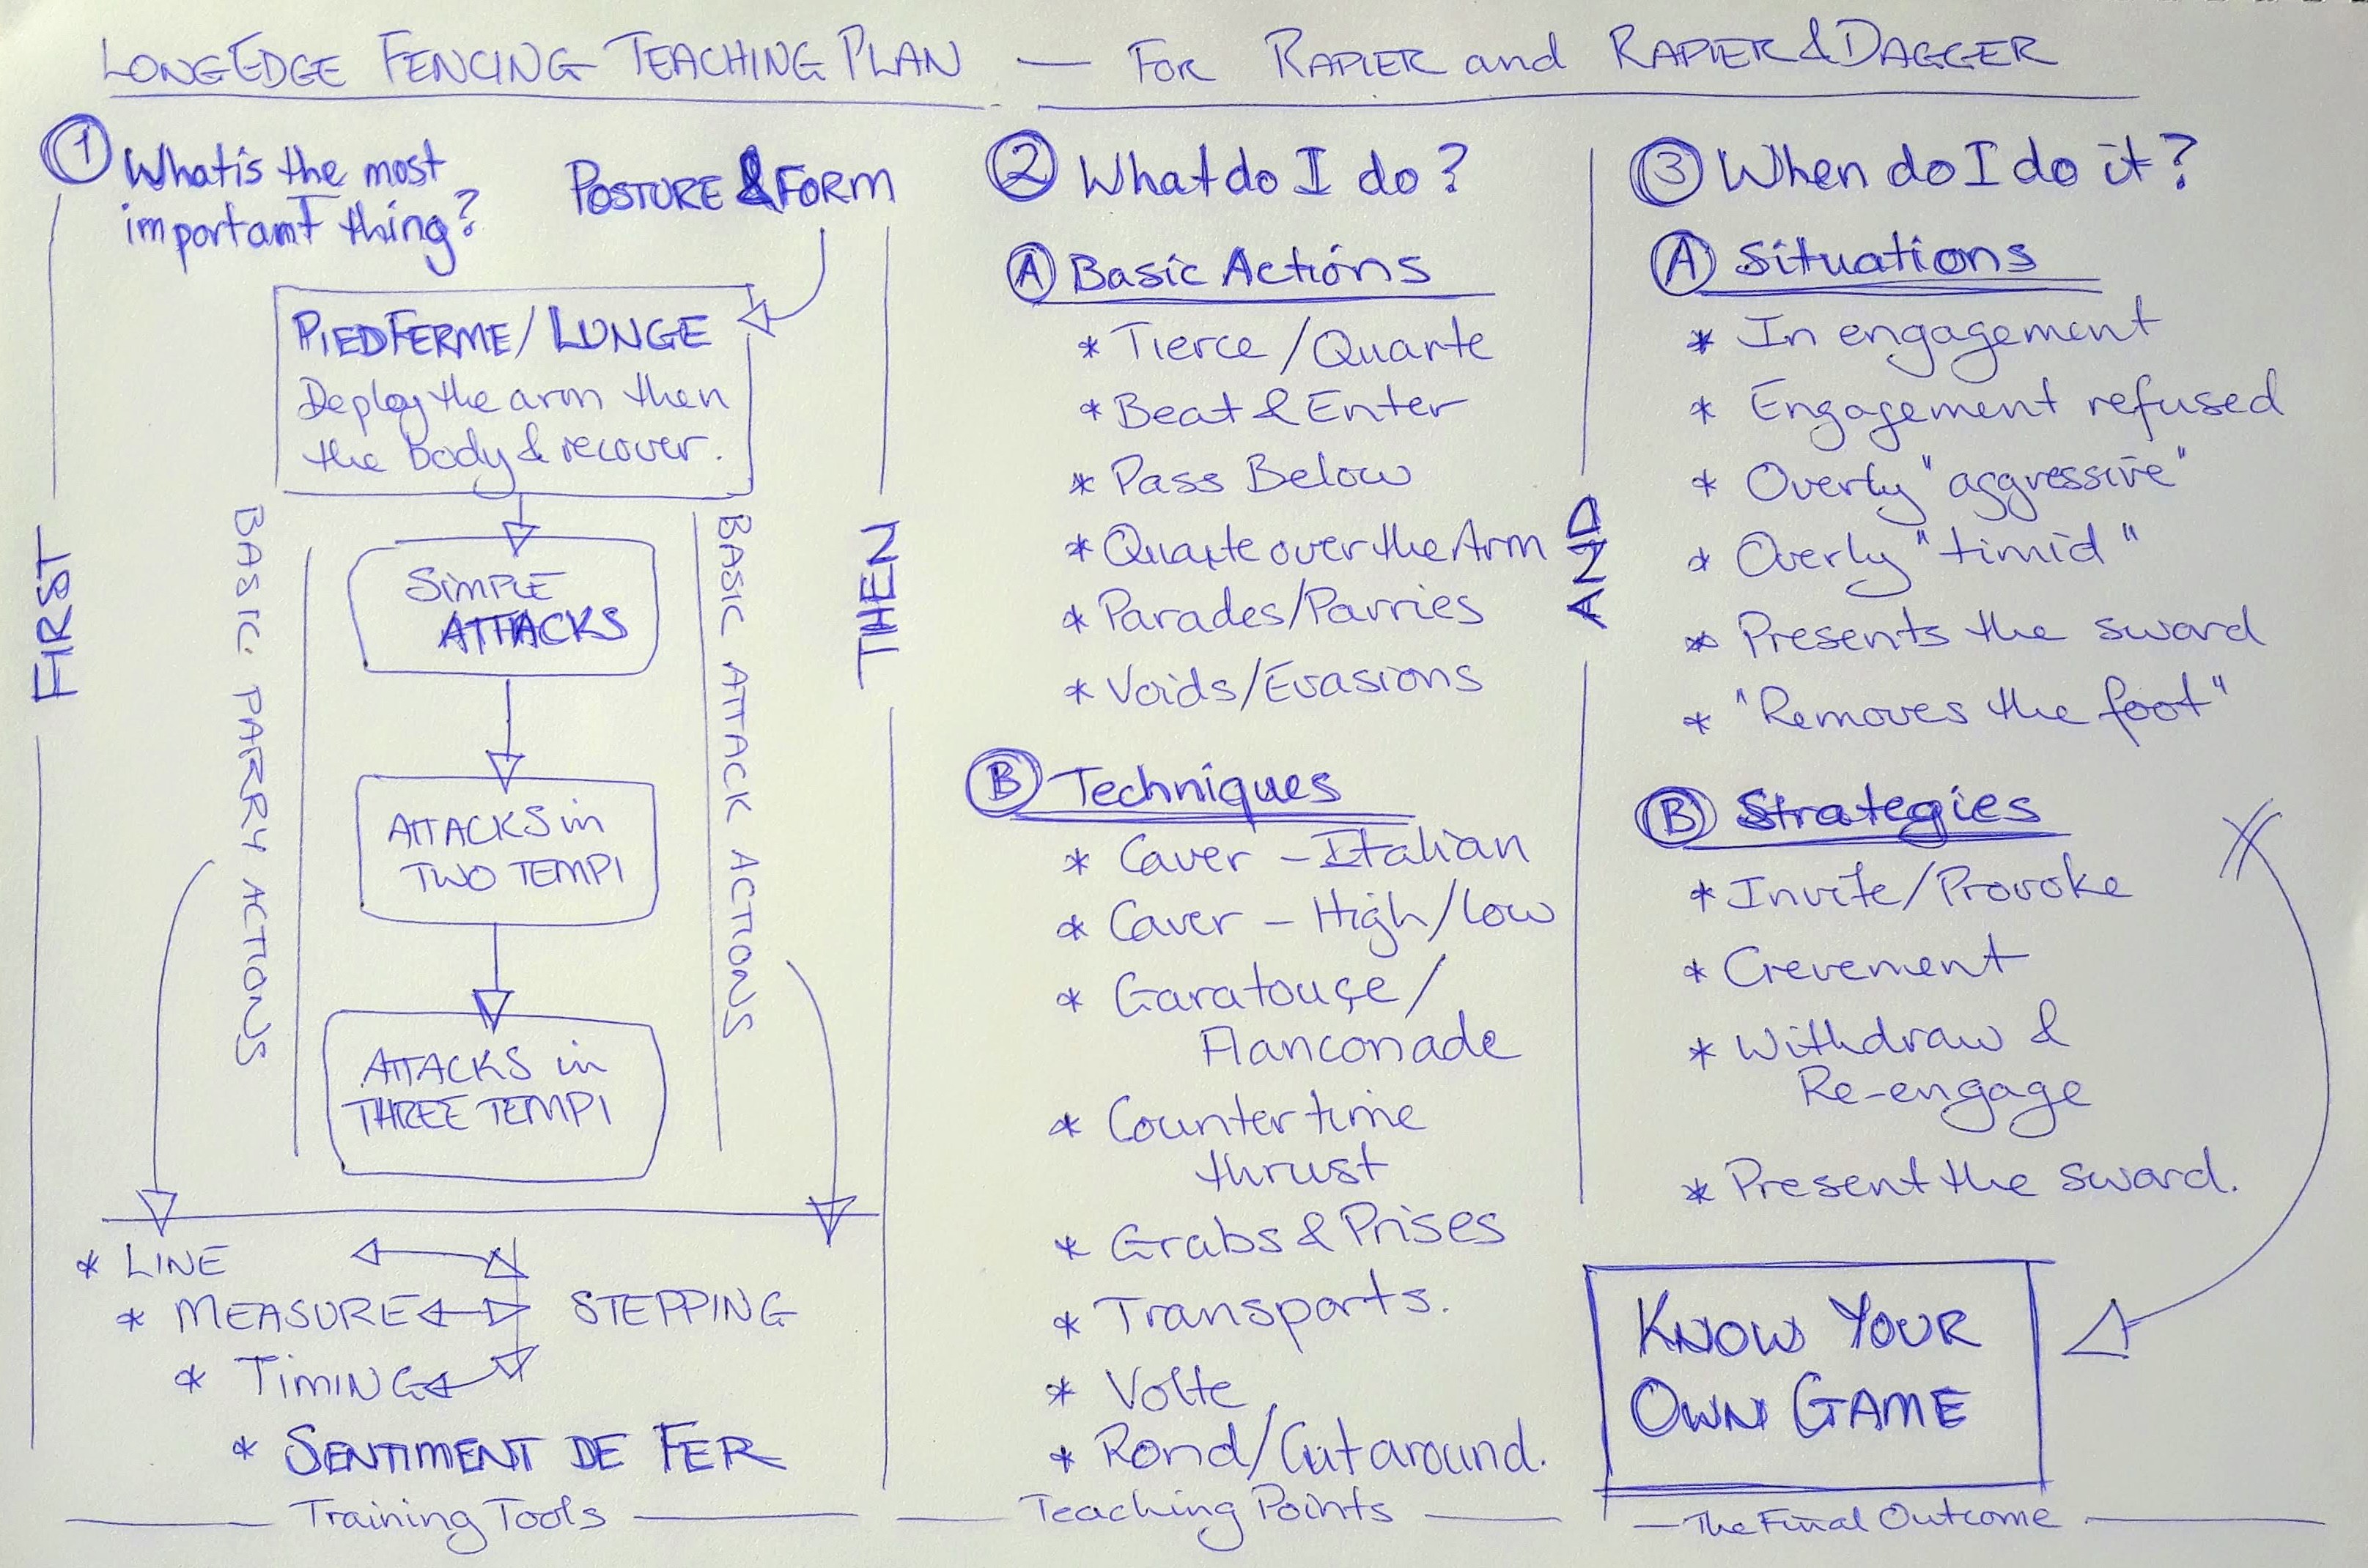 LONGEDGE FENCING TEACHING PLAN — FOR RAPIER and RAPIER & DAGGER
① What is the most
important thing?
POSTURE & FORM
PIED FERME / LUNGE
Deploy the arm then
the body & recover.
FIRST
BASIC PARRY ACTIONS
SIMPLE
ATTACKS
ATTACKS in
TWO TEMPI
ATTACKS in
THREE TEMPI
BASIC ATTACK ACTIONS
* LINE
* MEASURE STEPPING
* TIMING
* SENTIMENT DE FER
Training Tools
THEN
② What do I do?
Ⓐ Basic Actions
* Tierce / Quarte
* Beat & Enter
* Pass Below
* Quarte over the Arm
* Parades/Parries
* Voids/Evasions
Ⓑ Techniques
* Caver – Italian
* Caver – High/Low
* Garatouçe /
Flanconade
* Counter time
thrust
* Grabs & Prises
* Transports.
* Volte
* Rond/Cut around.
Teaching Points
AND
③ When do I do it?
Ⓐ Situations
* In engagement
* Engagement refused
* Overly "aggressive"
* Overly "timid"
* Presents the sword
* "Removes the foot"
Ⓑ Strategies
* Invite/Provoke
* Crevement
* Withdraw &
Re-engage
* Present the sword.
KNOW YOUR
OWN GAME
— The Final Outcome